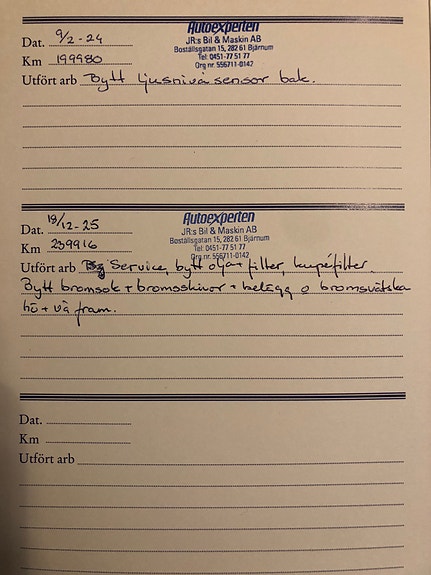 Autoexperten
JR:s Bil & Maskin AB
Boställsgatan 15, 282 61 Bjärnum
Tel: 0451-77 51 77
Org nr. 556711-0142
Dat. 9/2-24
Km 199980
Utfört arb Bytt ljusnivåsensor bak.
Autoexperten
JR:s Bil & Maskin AB
Boställsgatan 15, 282 61 Bjärnum
Tel: 0451-77 51 77
Org nr. 556711-0142
Dat. 18/12-25
Km 239916
Utfört arb Service, bytt olja + filter, kupéfilter.
Bytt bromsok + bromsskivor + belägg o bromsvätska
hö + vä fram.
Dat.
Km
Utfört arb